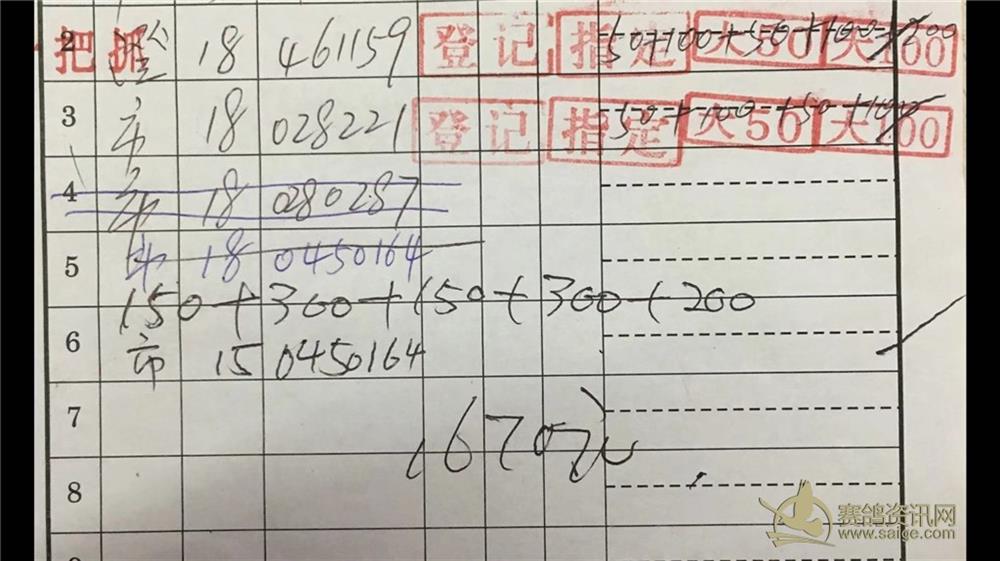 2 18 461159 登记 指定 大50 大100 50+100+50+100+200
把握
3 市 18 028221 登记 指定 大50 大100 50+100+50+100
4 市 18 0280287
5 市 18 0450164
150+300+150+300+200
6 市 15 0450164
7
1670元
8
赛鸽资讯网
www.saige.com